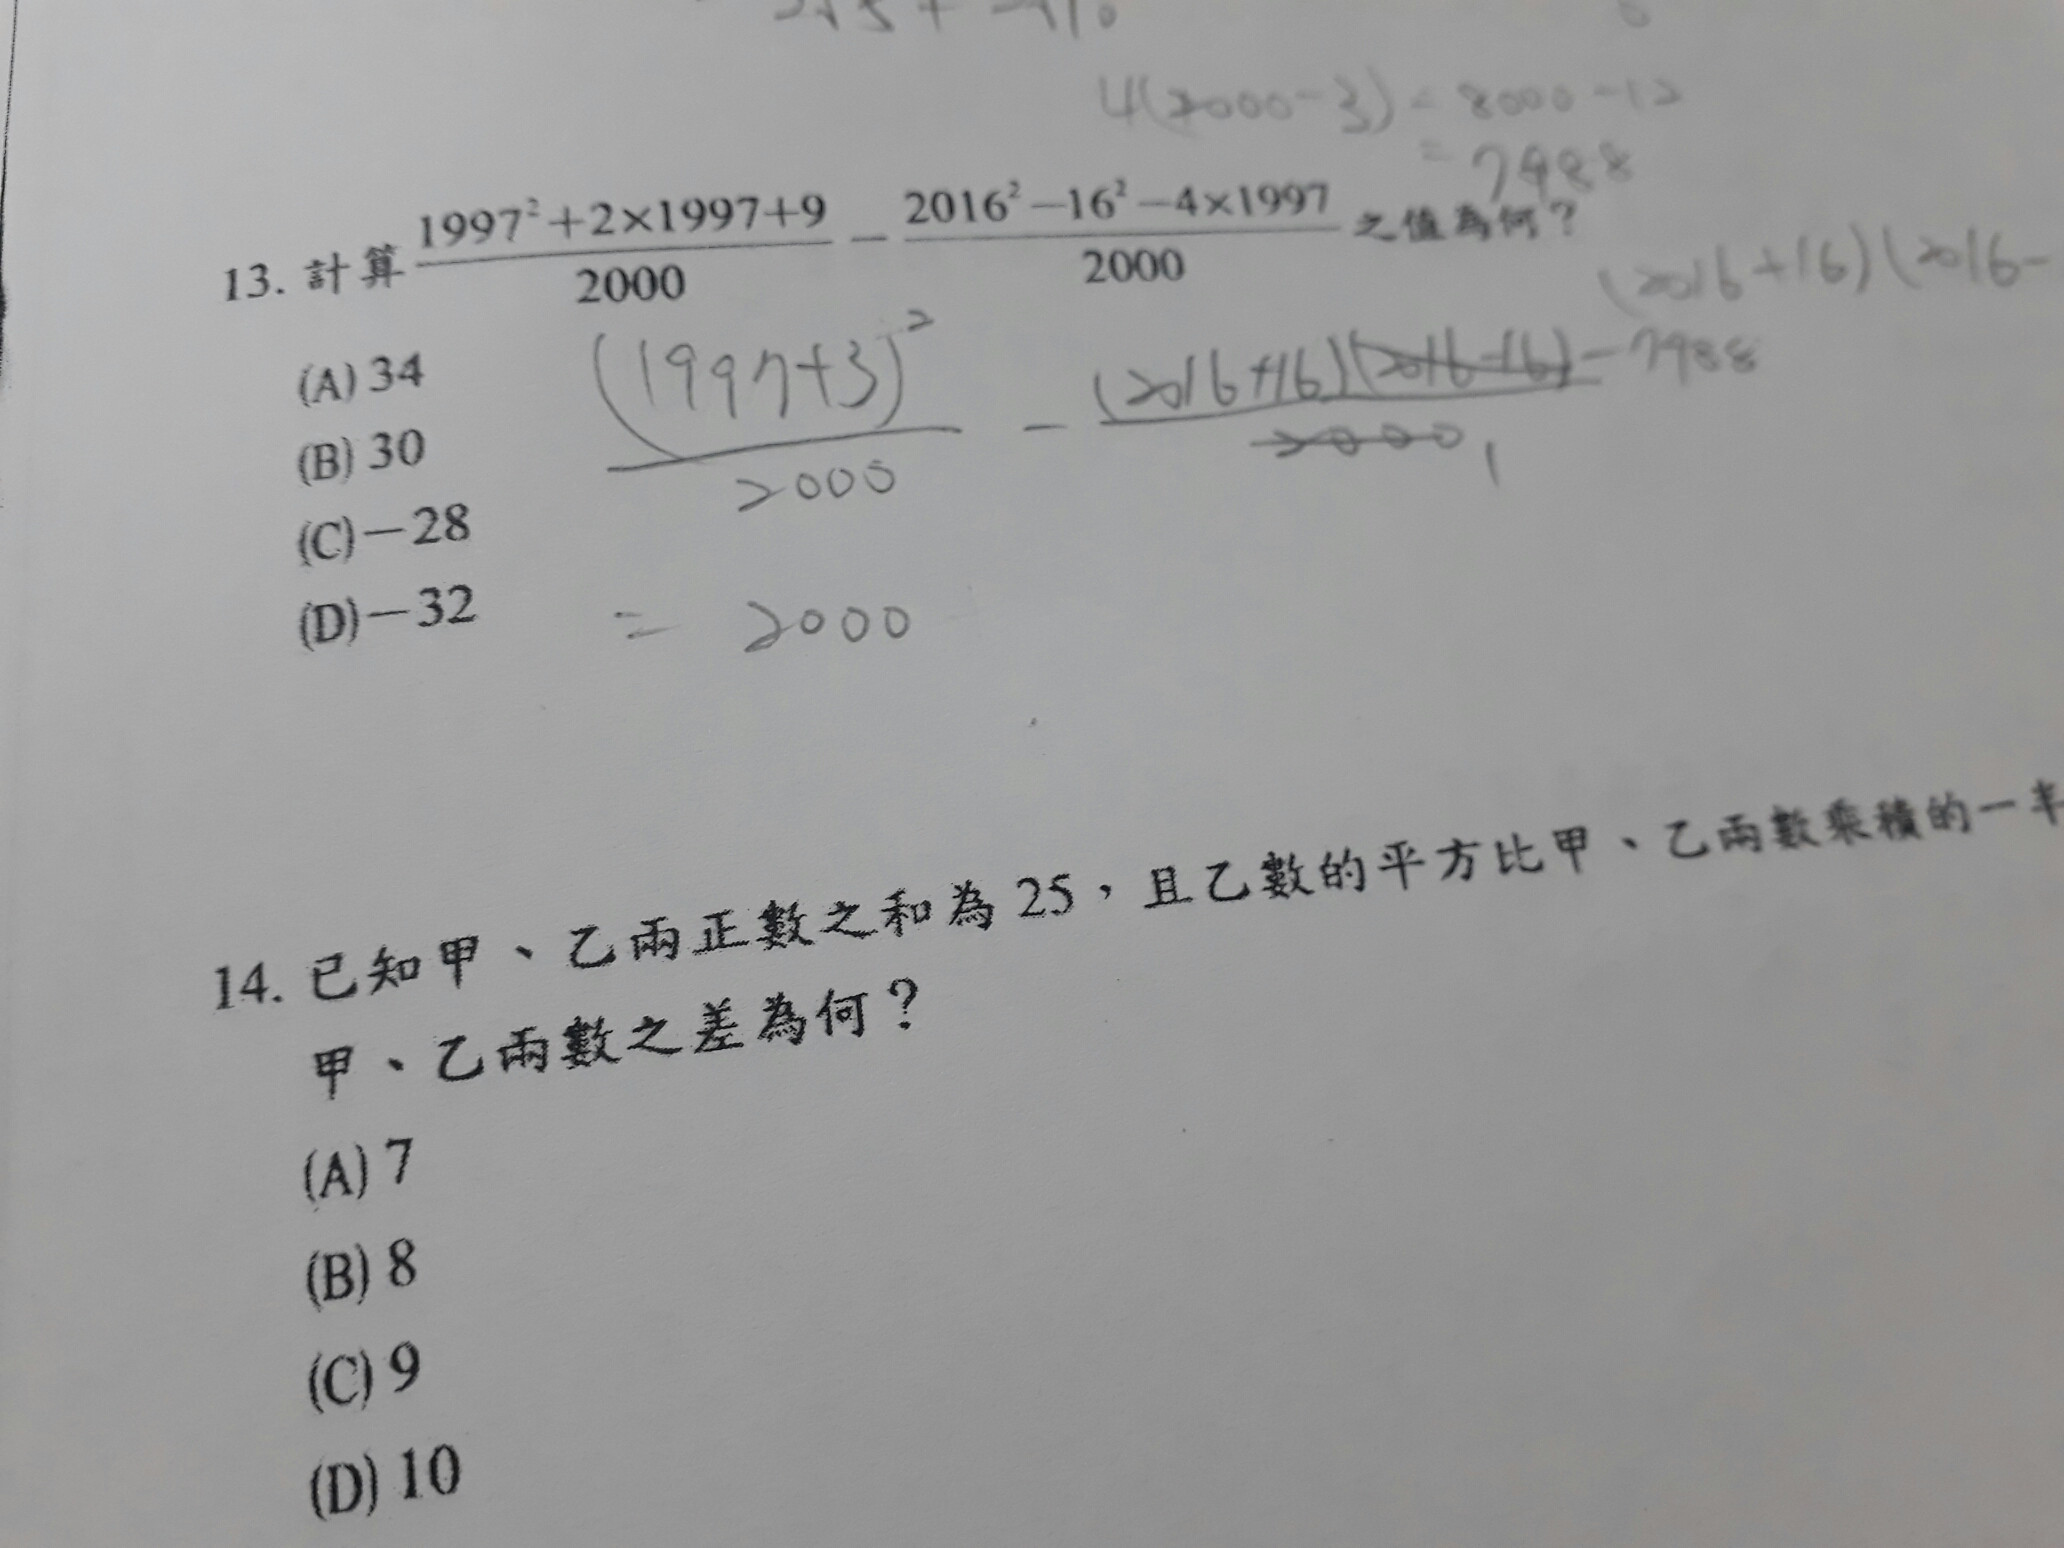 4(2000-3) = 8000-12
= 7988
13. 計算 \frac{1997²+2×1997+9}{2000} - \frac{2016²-16²-4×1997}{2000} 之值為何？
(2016+16)(2016-
(A) 34
(B) 30
(C) -28
(D) -32
\frac{(1997+3)²}{2000} - \frac{(2016+16)(2016-16)-7988}{2000} 1
= 2000
14. 已知甲、乙兩正數之和為 25，且乙數的平方比甲、乙兩數乘積的一半
甲、乙兩數之差為何？
(A) 7
(B) 8
(C) 9
(D) 10